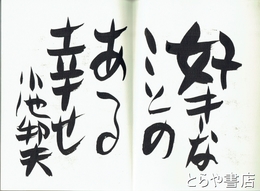 好きな
ことの
ある
幸せ
小池邦夫
とらや書店